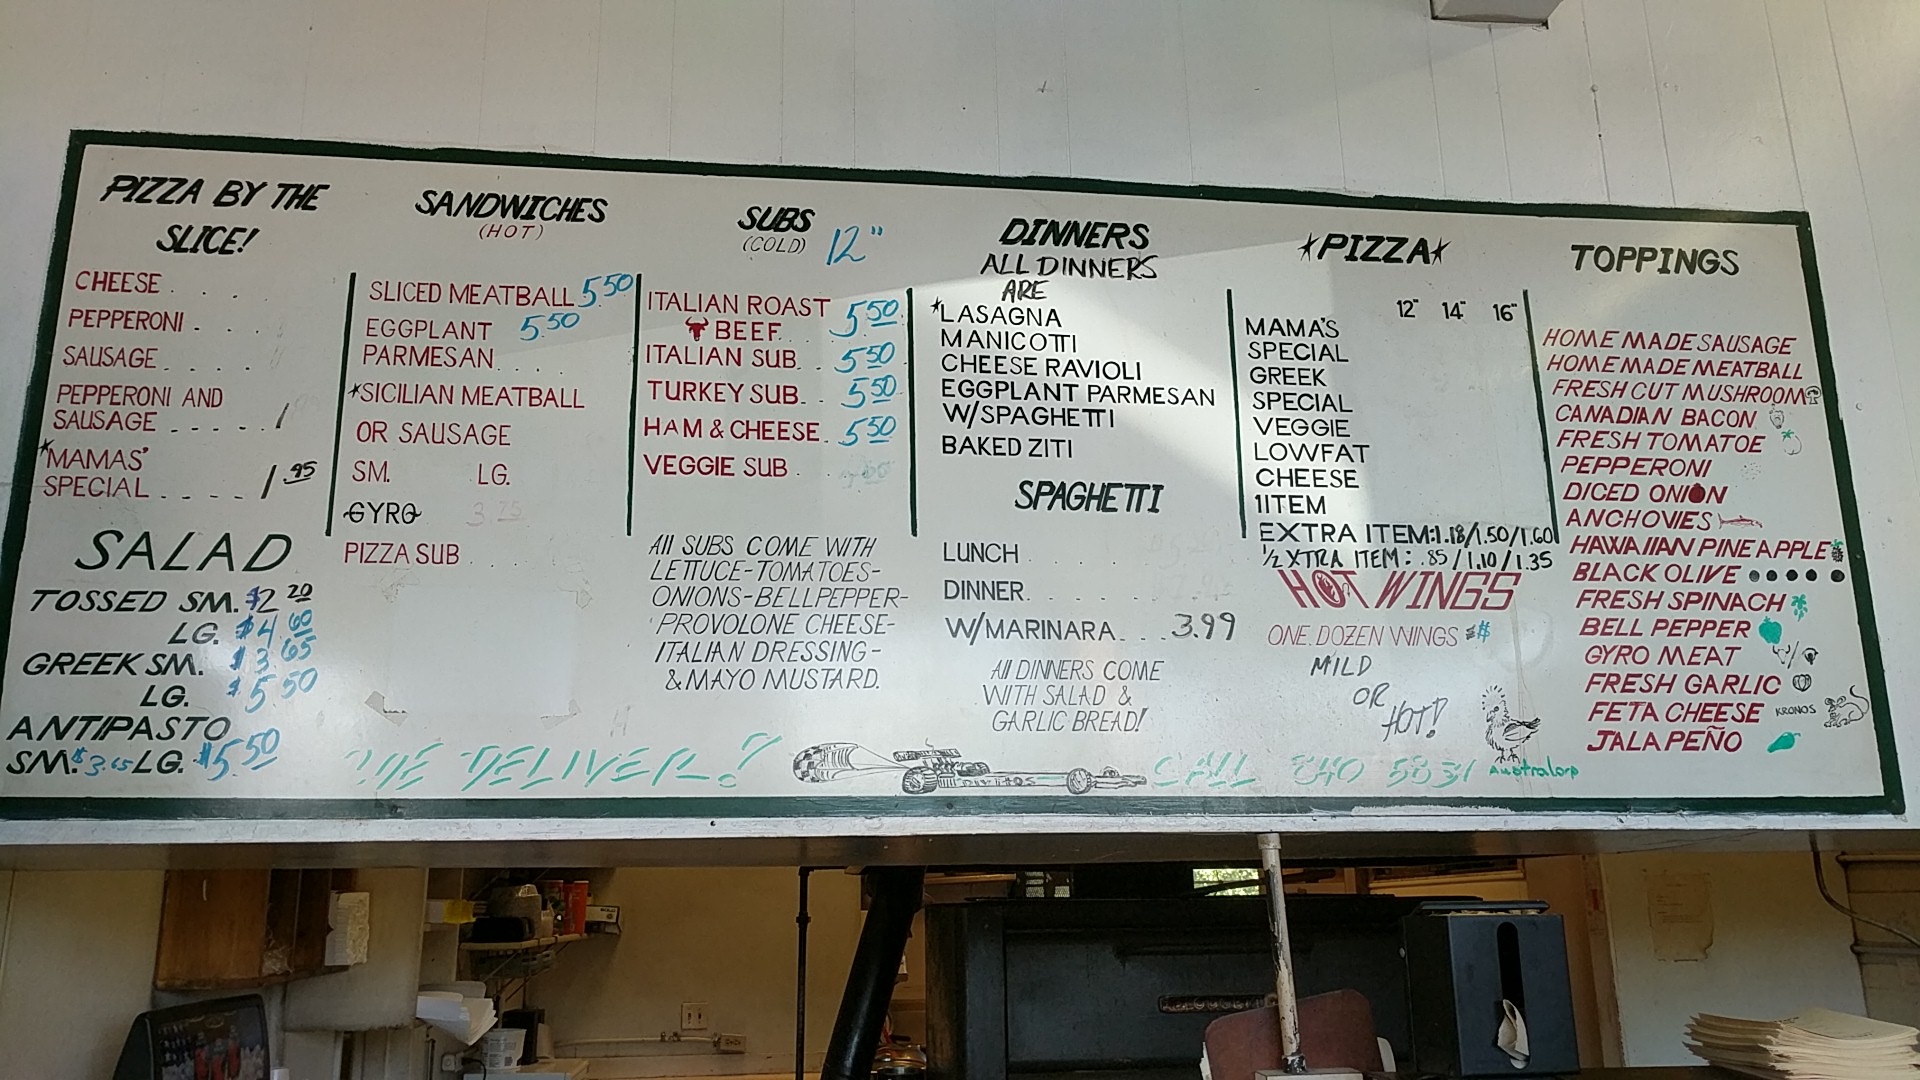 PIZZA BY THE
SLICE!
CHEESE . . . .
PEPPERONI . . .
SAUSAGE . . . .
PEPPERONI AND
SAUSAGE . . . . . 1
*MAMAS'
SPECIAL . . . . 1.95
SALAD
TOSSED SM. $2.20
LG. $4.60
GREEK SM. $3.65
LG. $5.50
ANTIPASTO
SM. $3.65 LG. $5.50
SANDWICHES
(HOT)
SLICED MEATBALL 5.50
EGGPLANT 5.50
PARMESAN . . . .
*SICILIAN MEATBALL
OR SAUSAGE
SM. LG.
GYRO 3.75
PIZZA SUB . . . .
SUBS
(COLD) 12"
ITALIAN ROAST
BEEF . . . 5.50
ITALIAN SUB . . 5.50
TURKEY SUB . . 5.50
HAM & CHEESE . 5.50
VEGGIE SUB . .
All SUBS COME WITH
LETTUCE-TOMATOES-
ONIONS-BELLPEPPER-
PROVOLONE CHEESE-
ITALIAN DRESSING-
& MAYO MUSTARD.
DINNERS
ALL DINNERS
ARE
*LASAGNA
MANICOTTI
CHEESE RAVIOLI
EGGPLANT PARMESAN
W/SPAGHETTI
BAKED ZITI
SPAGHETTI
LUNCH . . . .
DINNER . . . .
W/MARINARA . . . 3.99
All DINNERS COME
WITH SALAD &
GARLIC BREAD!
*PIZZA*
12" 14" 16"
MAMA'S
SPECIAL
GREEK
SPECIAL
VEGGIE
LOWFAT
CHEESE
1 ITEM
EXTRA ITEM: 1.18/1.50/1.60
1/2 XTRA ITEM: .85/1.10/1.35
HOT WINGS
ONE DOZEN WINGS $
MILD
OR
HOT!
TOPPINGS
HOME MADE SAUSAGE
HOME MADE MEATBALL
FRESH CUT MUSHROOM
CANADIAN BACON
FRESH TOMATOE
PEPPERONI
DICED ONION
ANCHOVIES
HAWAIIAN PINEAPPLE
BLACK OLIVE
FRESH SPINACH
BELL PEPPER
GYRO MEAT
FRESH GARLIC
FETA CHEESE KRONOS
JALAPEÑO
WE DELIVER!
CALL 840 5831
Australorp